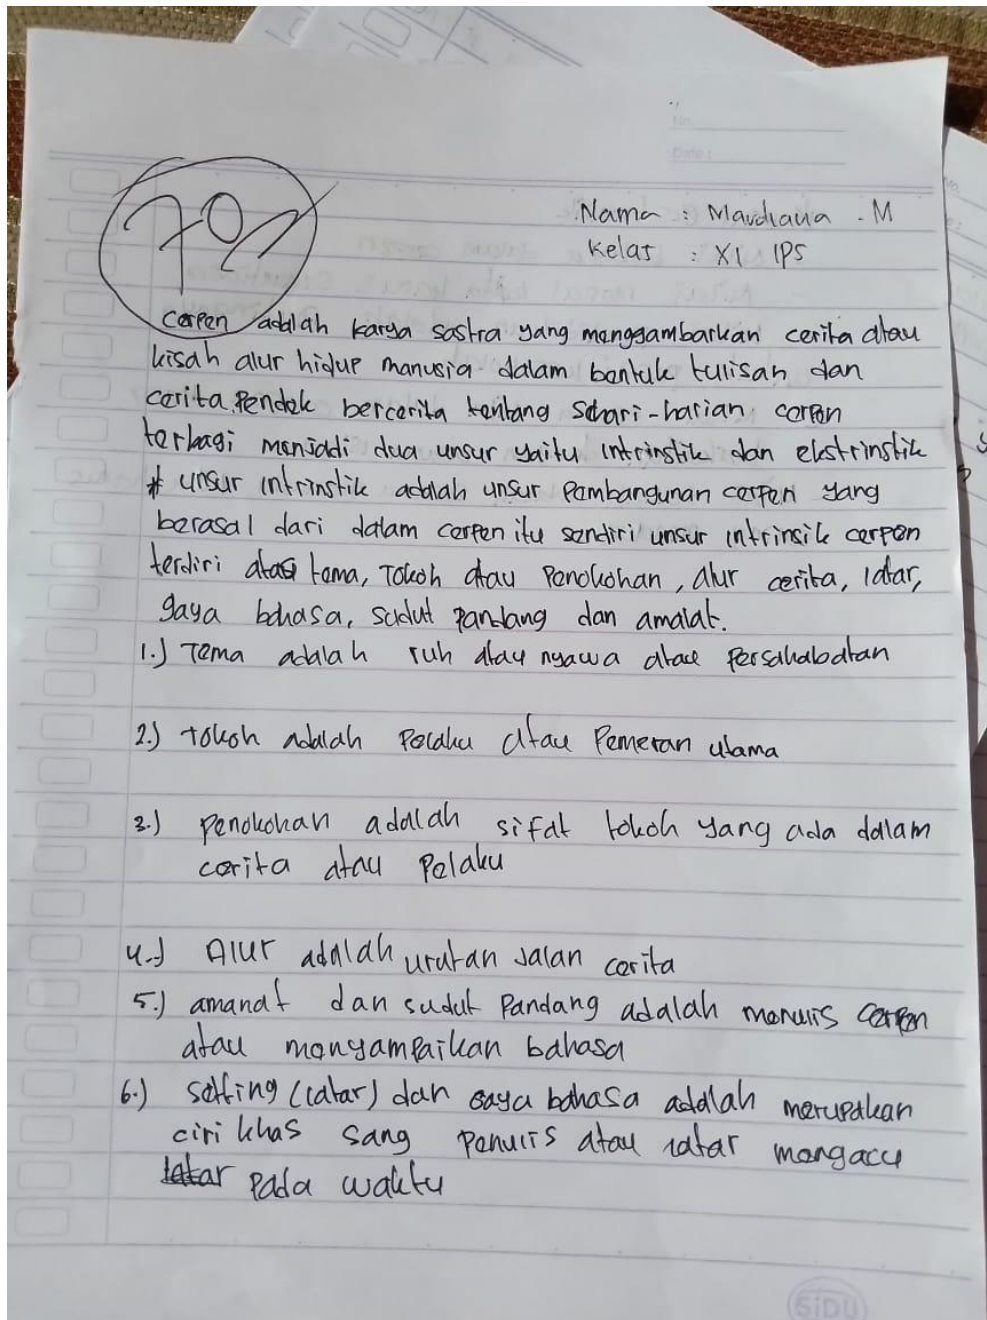 No.
Date :
70
Nama : Mardiana . M
Kelas : XI IPS
cerpen adalah karya sastra yang menggambarkan cerita atau
kisah alur hidup manusia dalam bentuk tulisan dan
cerita pendek bercerita tentang sehari-harian cerpen
terbagi menjadi dua unsur yaitu intrinstik dan ekstrinstik
* unsur intrinstik adalah unsur pembangunan cerpen yang
berasal dari dalam cerpen itu sendiri unsur intrinsik cerpen
terdiri atas tema, Tokoh atau Penokohan, alur cerita, latar,
gaya bahasa, sudut pandang dan amalat.
1.) Tema adalah ruh atau nyawa atau persahabatan
2.) tokoh adalah Pelaku atau Pemeran utama
3.) penokohan adalah sifat tokoh yang ada dalam
cerita atau pelaku
4.) Alur adalah urutan jalan cerita
5.) amanat dan sudut pandang adalah menulis cerpen
atau menyampaikan bahasa
6.) setting (latar) dan gaya bahasa adalah merupakan
ciri khas sang penulis atau latar mengacu
latar pada waktu
SiDU